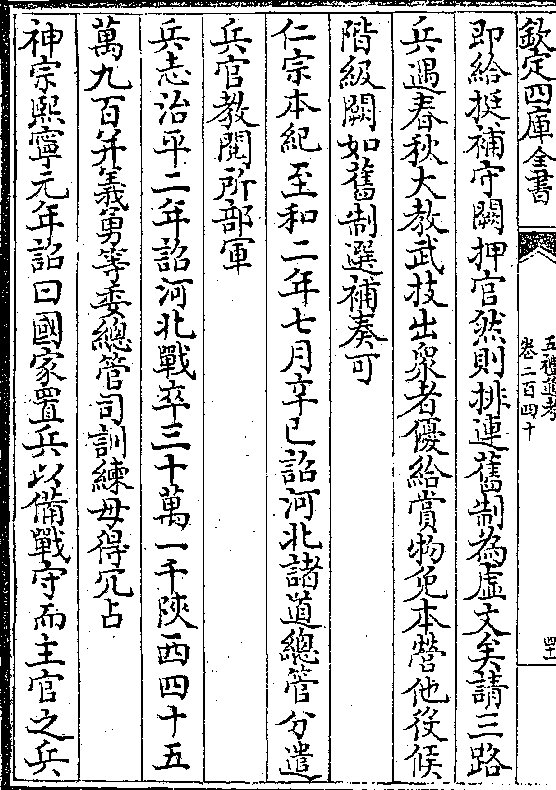 欽定四庫全書
五禮通考
卷二百四十
四十
即給挺補守闕押官然則排連舊制為虛文矣請三路
兵遇春秋大教武技出衆者優給賞物免本營他役候
階級闕如舊制選補奏可
仁宗本紀至和二年七月辛巳詔河北諸道總管分遣
兵官教閱所部軍
兵志治平二年詔河北戰卒三十萬一千陝西四十五
萬九百并義勇等委總管司訓練毋得冗占
神宗熙寧元年詔曰國家置兵以備戰守而主官之兵